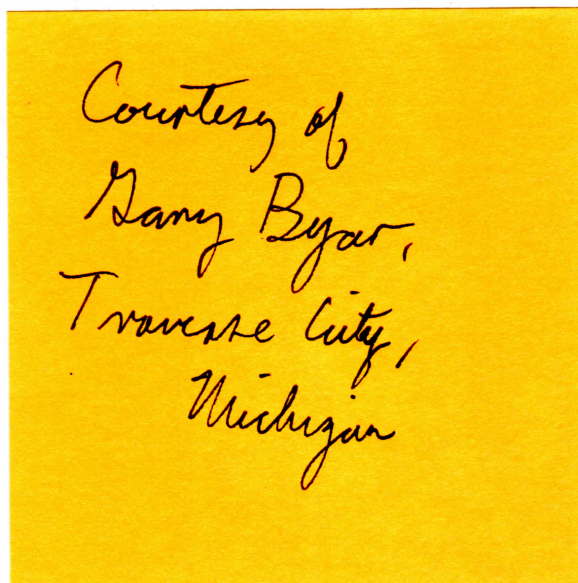 Courtesy of
Gary Byar,
Traverse City,
Michigan